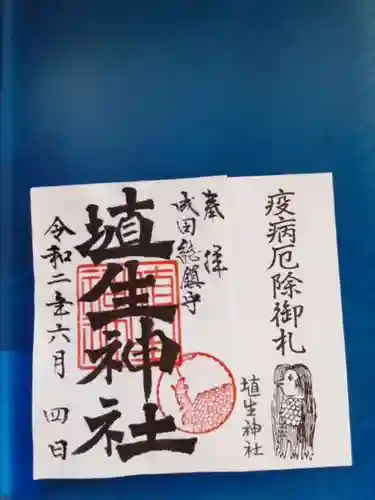 疫病厄除御札
埴生神社
奉拝
成田総鎮守
埴生神社
令和二年六月四日